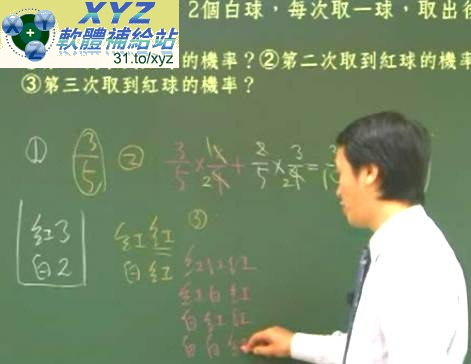 XYZ
軟體補給站
31.to/xyz
2個白球，每次取一球，取出
的機率？②第二次取到紅球的機率
③第三次取到紅球的機率？
① 3/5 ②
紅3
白2
紅紅
白紅
③
紅紅紅
紅白紅
白紅紅
白白紅